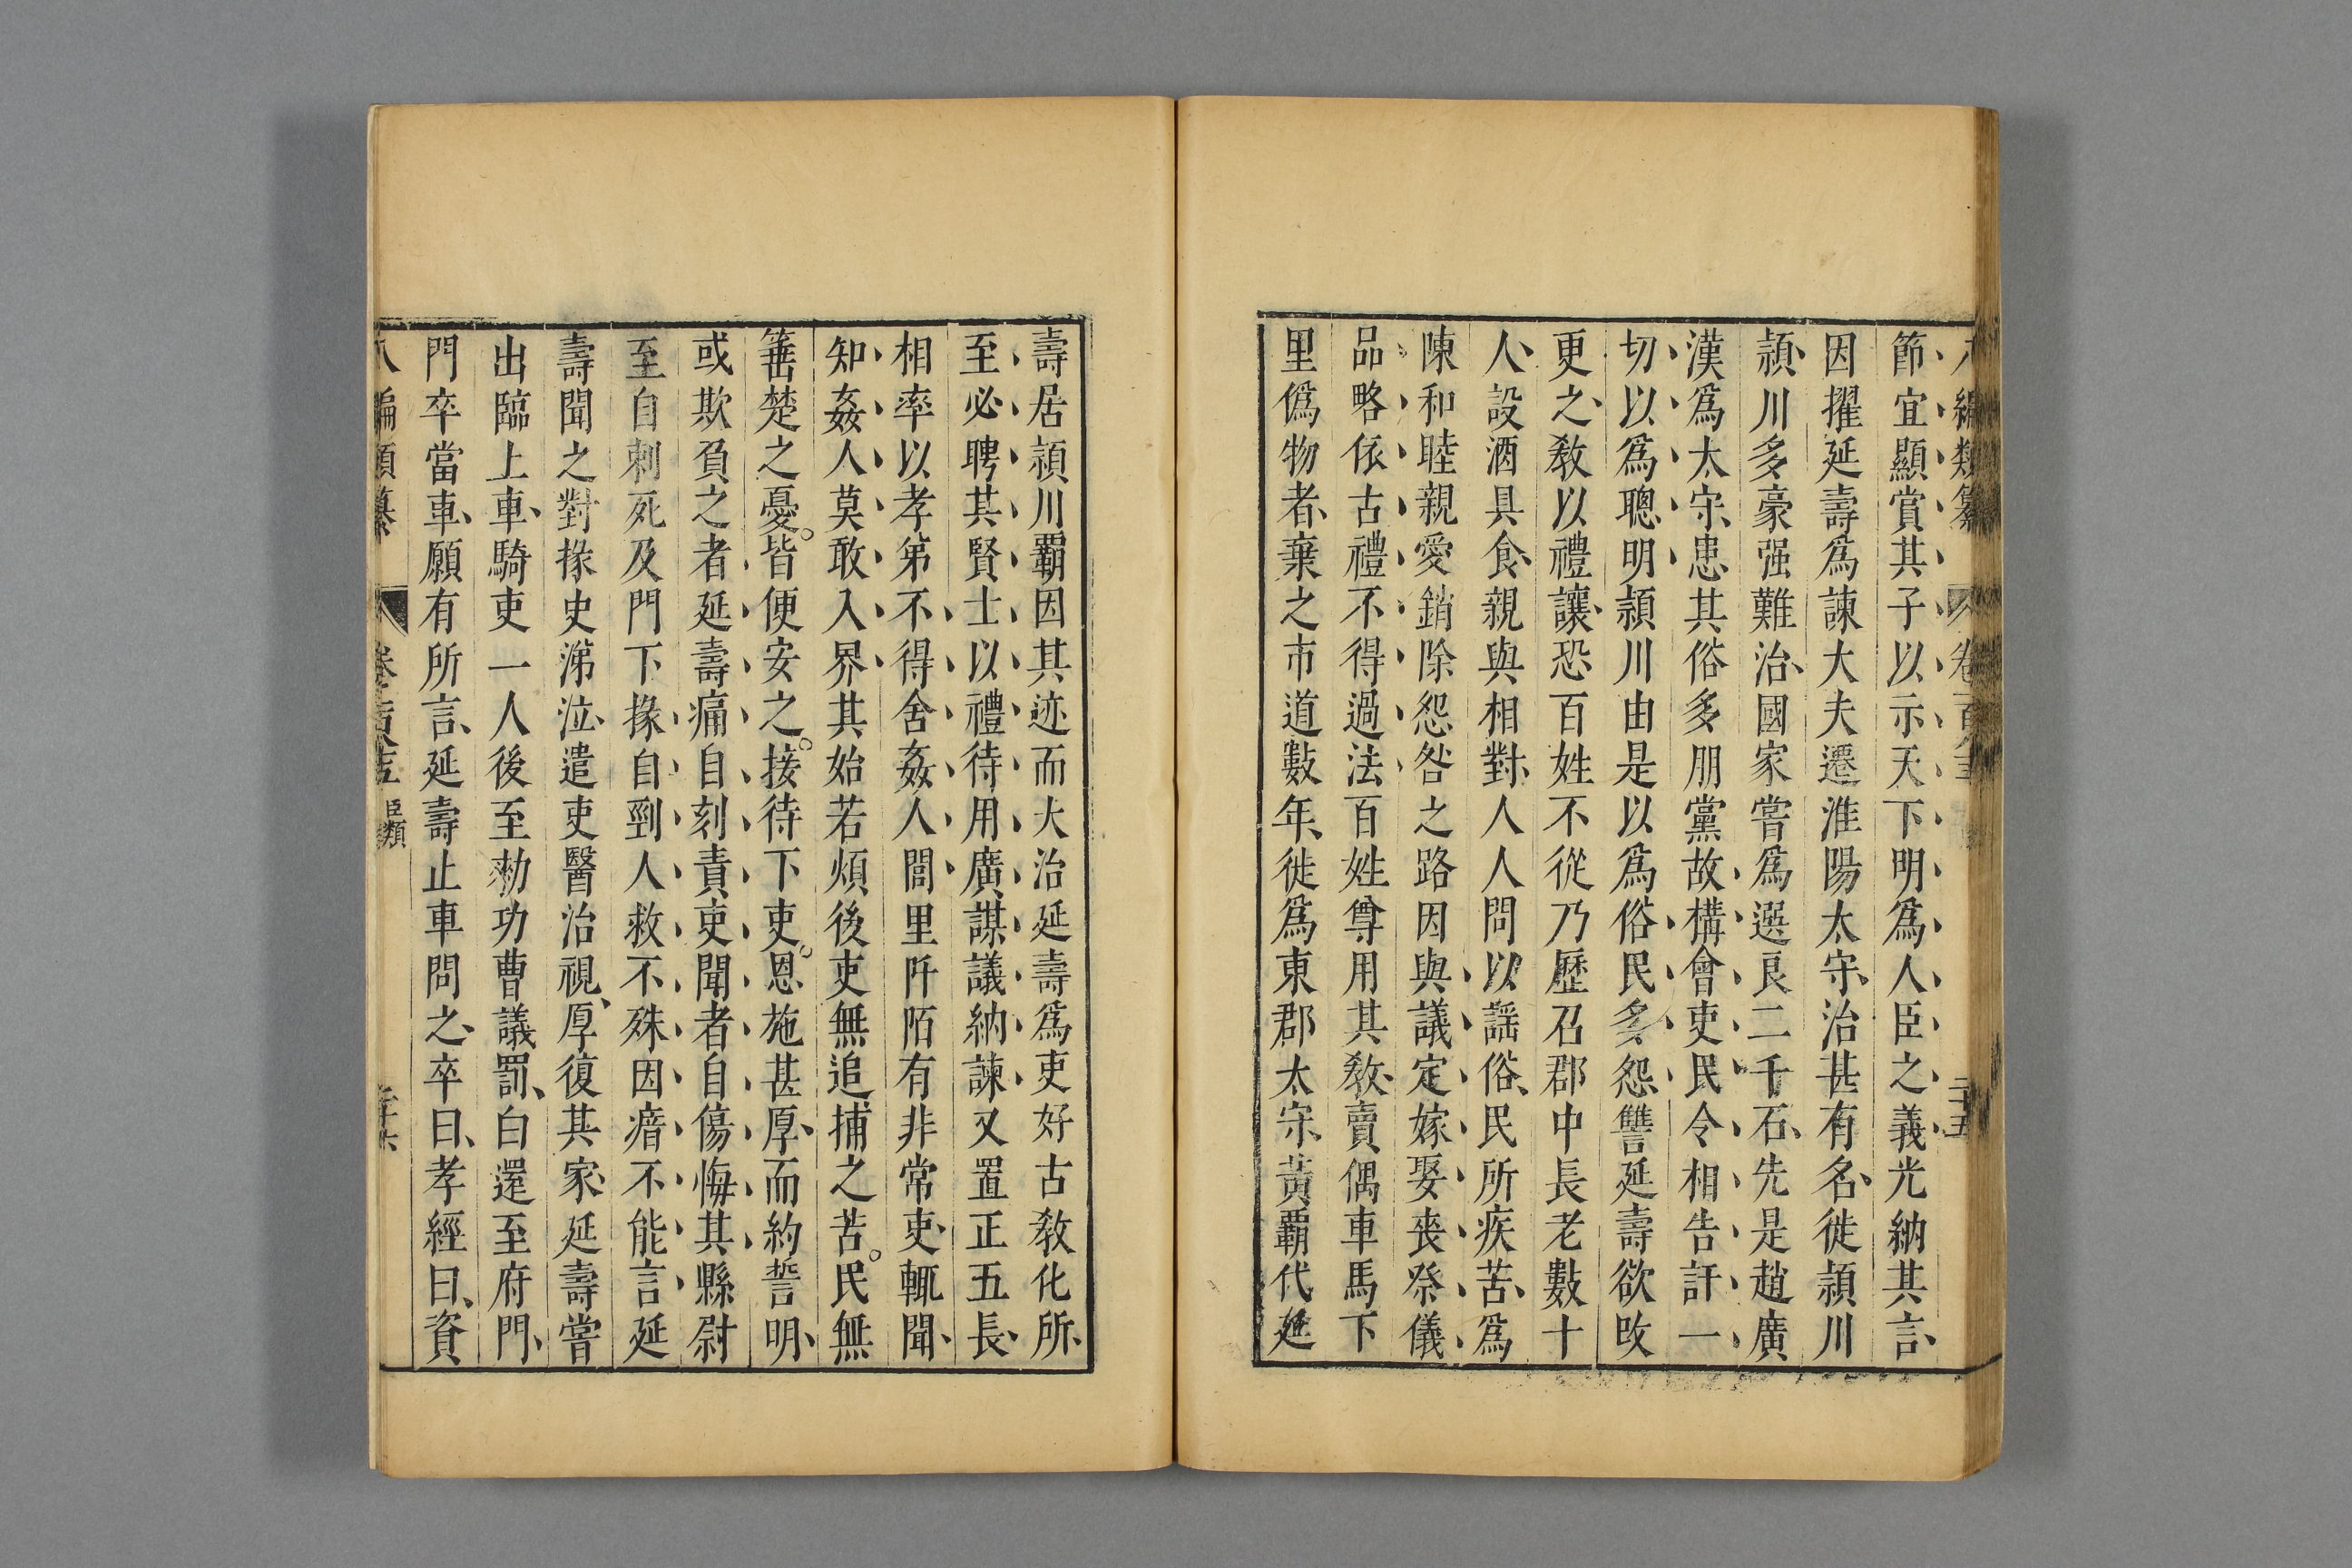 節宜顯賞其子以示天下明爲人臣之義光納其言
因擢延壽爲諫大夫遷淮陽太守治甚有名徙潁川
潁川多豪强難治國家嘗爲選良二千石先是趙廣
漢爲太守患其俗多朋黨故構會吏民令相告訐一
切以爲聰明潁川由是以爲俗民多怨讐延壽欲攺
更之敎以禮讓恐百姓不從乃歷召郡中長老數十
人設酒具食親與相對人人問以謡俗民所疾苦爲
陳和睦親愛銷除怨咎之路因與議定嫁娶丧祭儀
品略依古禮不得過法百姓尊用其敎賣偶車馬下
里僞物者棄之市道數年徙爲東郡太守黃覇代延
壽居潁川覇因其迹而大治延壽爲吏好古敎化所
至必聘其賢士以禮待用廣謀議納諫又置正五長
相率以孝弟不得舍姦人閭里阡陌有非常吏輒聞
知姦人莫敢入界其始若煩後吏無追捕之苦民無
箠楚之憂皆便安之接待下吏恩施甚厚而約誓明
或欺負之者延壽痛自刻責吏聞者自傷悔其縣尉
至自刺死及門下掾自剄人救不殊因瘖不能言延
壽聞之對掾史涕泣遣吏醫治視厚復其家延壽嘗
出臨上車騎吏一人後至勑功曹議罰白還至府門
門卒當車願有所言延壽止車問之卒曰孝經曰資
八編類纂 卷二百八十五 臣類 三十六